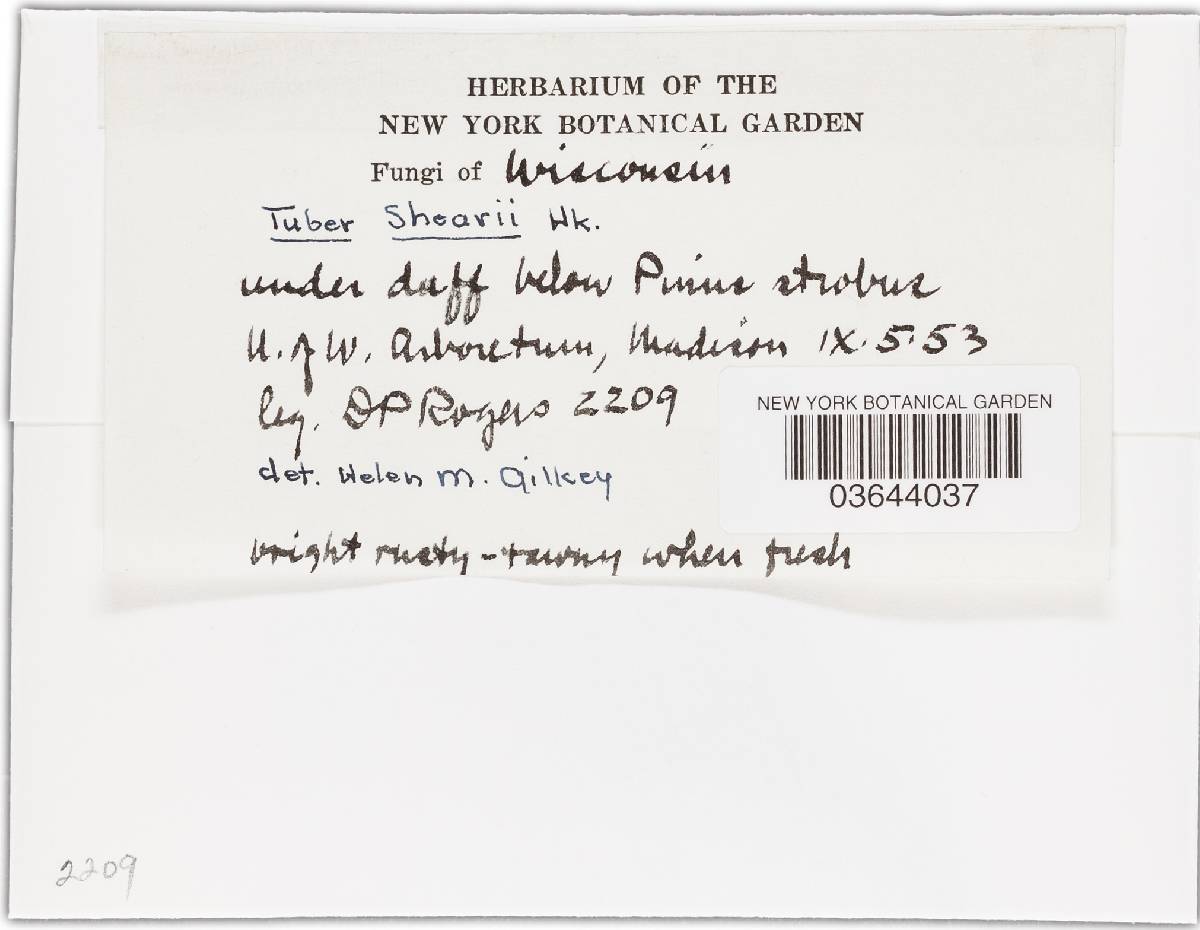 HERBARIUM OF THE
NEW YORK BOTANICAL GARDEN
Fungi of Wisconsin
Tuber Shearii Hk.
under duff below Pinus strobus
U. of W. Arboretum, Madison IX.5.53
leg. DP Rogers 2209
det. Helen M. Gilkey
bright rusty-tawny when fresh
NEW YORK BOTANICAL GARDEN
03644037
2209